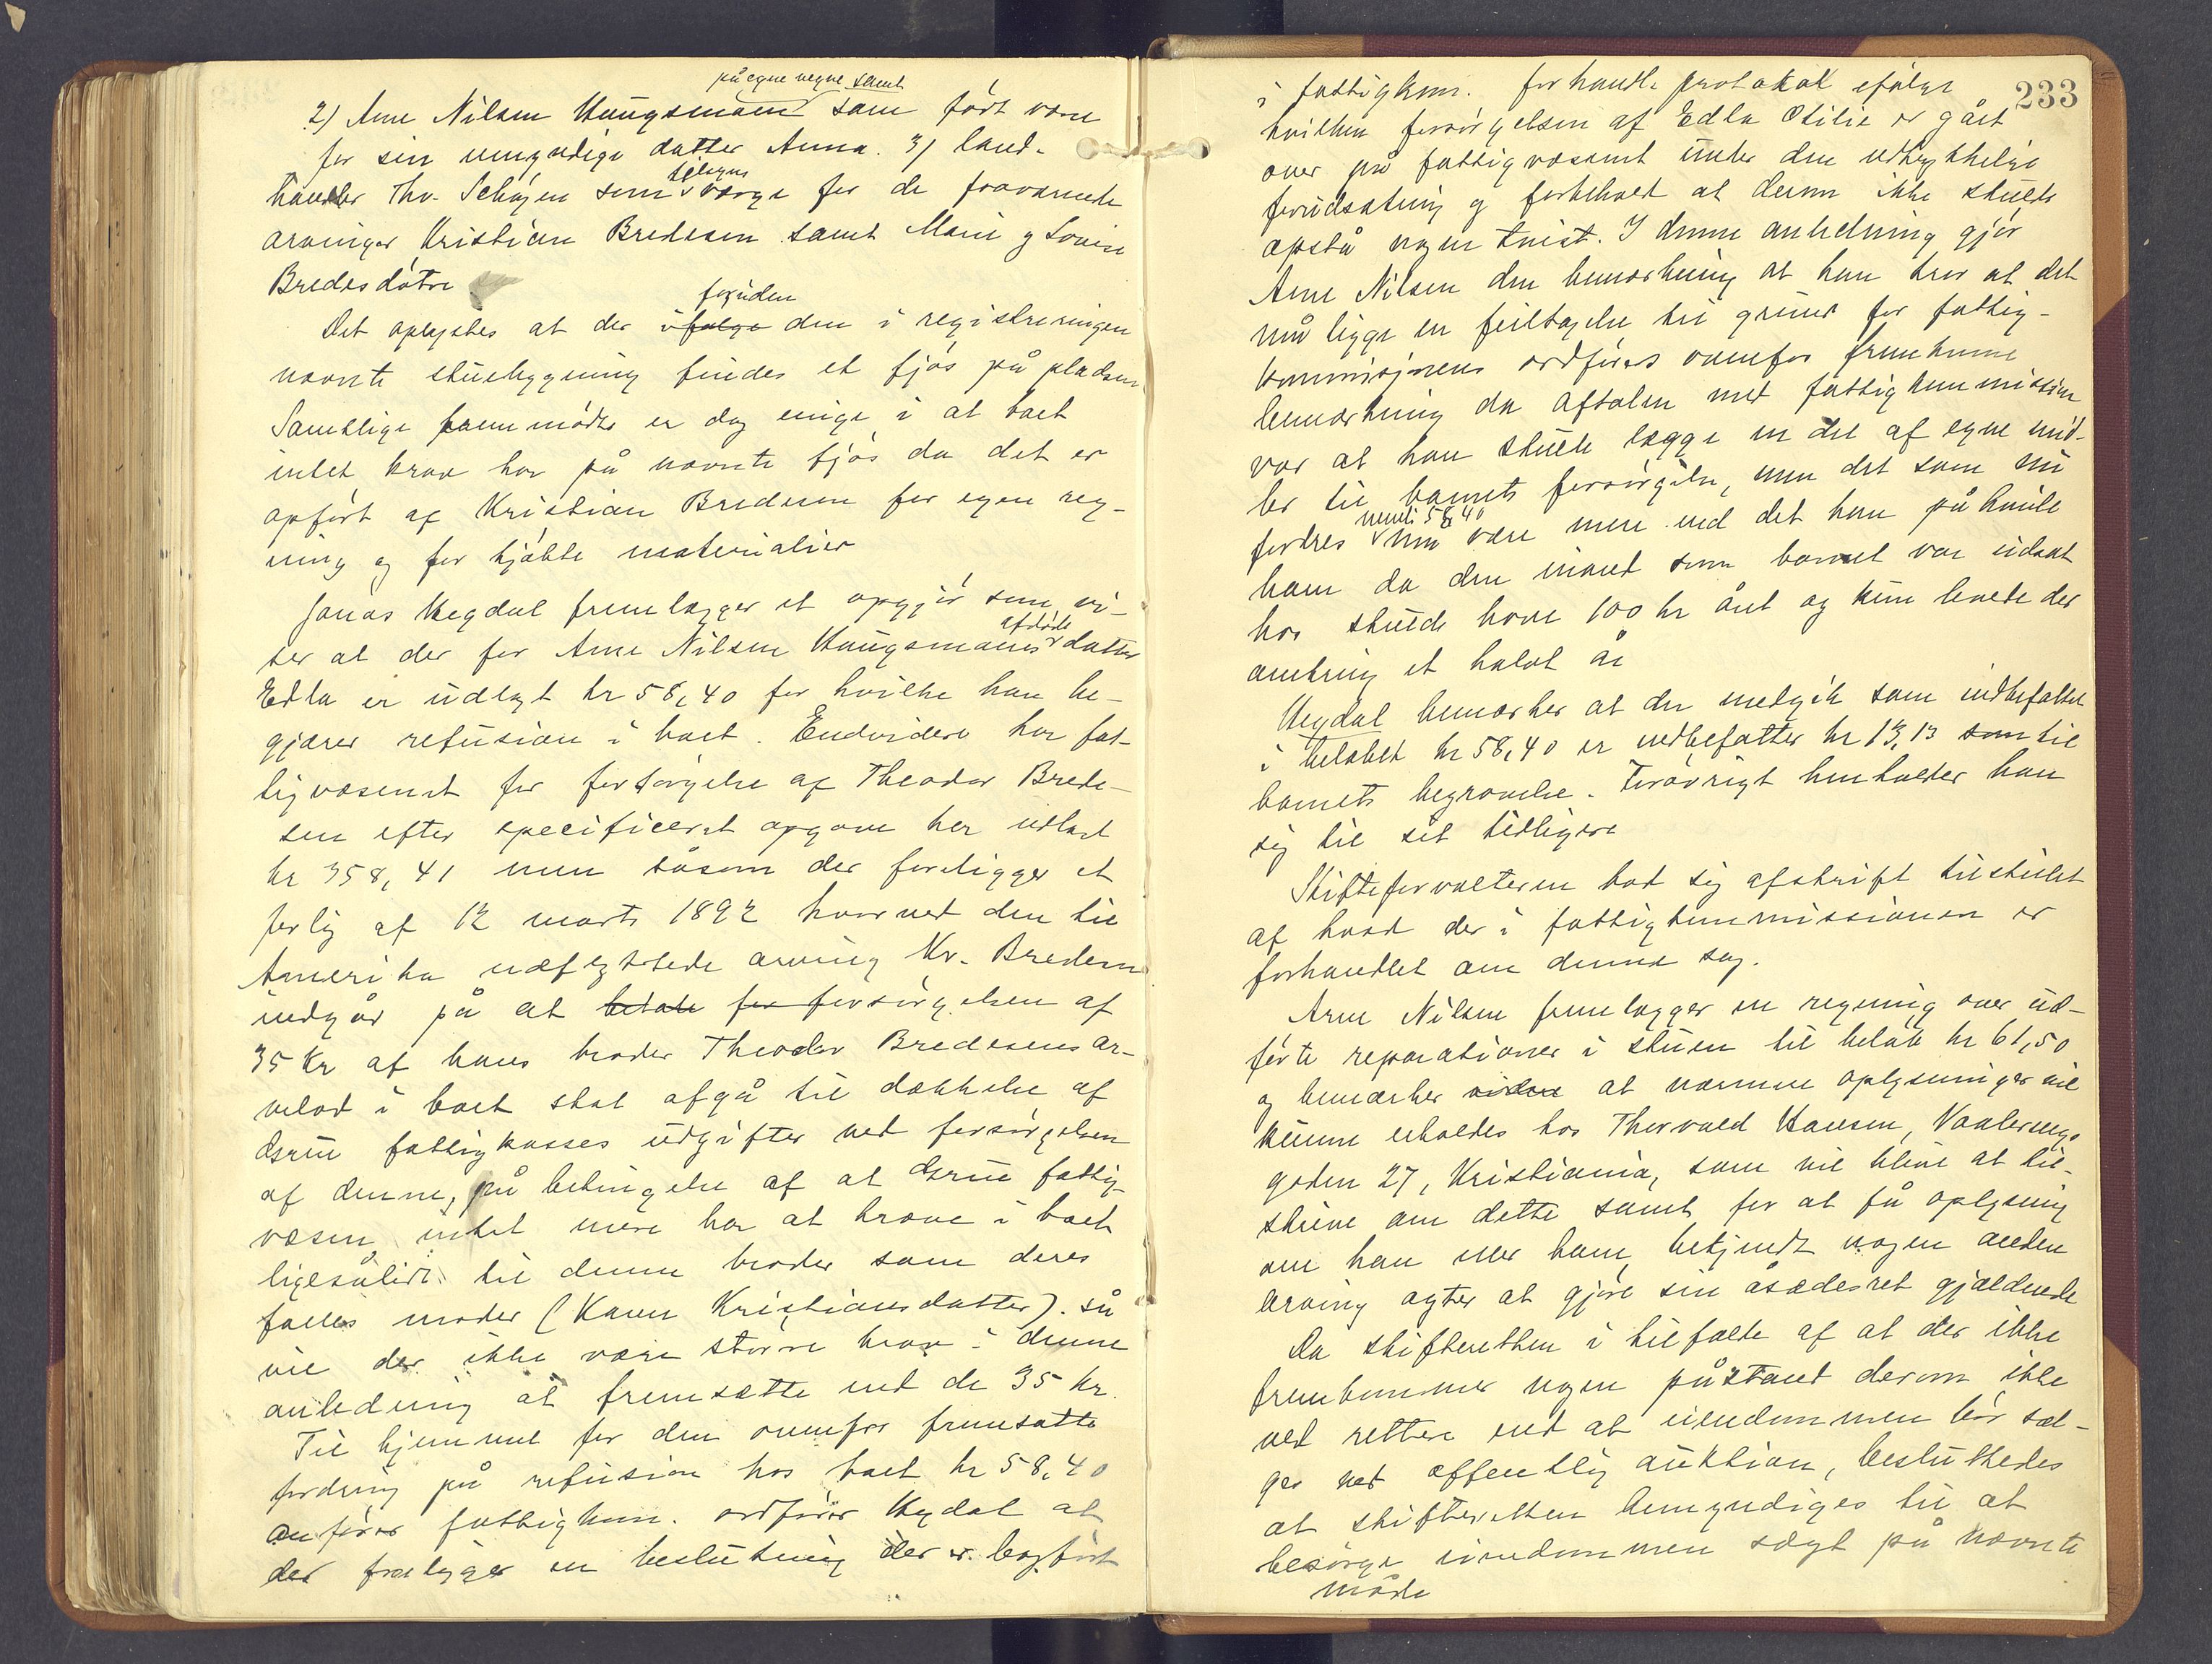 på egne vegne samt
2) Arne Nilsen Haugsmoen som født værge
for sin umyndige datter Anna. 3) land-
handler Thv. Schøyen som tilsyns værge for de fraværende
arvinger Kristian Bredesen samt Marie og Lovise
Bredesdøtre.
Det oplystes at der ifølge foruden den i registreringen
nævnte stuebygning findes et fjøs på pladsen
Samtlige fremmødte er dog enige i at boet
intet krav har på nævnte fjøs da det er
opført af Kristian Bredesen for egen reg-
ning og for kjøbte materialier
Jonas Hegdal fremlægger et opgjør som vi-
ser at der for Arne Nilsen Haugsmoens afdøde datter
Edla er udlagt kr 58,40 for hvilke han be-
gjærer refusion i boet. Endvidere har fat-
tigvæsenet for forsørgelse af Theodor Brede-
sen efter specificeret opgave her udlagt
kr 358,41 men såsom der foreligger et
forlig af 12 marts 1892 hvorved den til
Amerika udflyttede arving Kr. Bredesen
indgår på at betale for forsørgelsen af
35 kr af hans broder Theodor Bredesens ar-
velod i boet skal afgå til dækkelse af
fattigkasses udgifter ved forsørgelsen
af denne, på betingelse af at fattig-
væsen intet mere har at kræve i boet
ligesålidt til denne broder som deres
fælles moder (Karen Kristiansdatter). så
vil der ikke være større krav i denne
anledning at fremsætte end de 35 kr.
Til hjemmel for den ovenfor fremsatte
fordring på refusion hos boet kr 58,40
anfører fattigkom. ordfører Hegdal at
der foreligger en beslutning der er bogført
233
i fattigkom. forhandl. protokol ifølge
hvilken forsørgelsen af Edla Otilie er gået
over på fattigvæsenet under den udtrykkelige
forudsætning og forbehold at derom ikke skulde
opstå nogen tvist. I denne anledning gjør
Arne Nilsen den bemærkning at han tror at det
må ligge en feiltagelse til grund for fattig-
kommisjonens ordførers ovenfor fremkomne
bemærkning da aftalen med fattigkommissionen
var at han skulde lægge en del af egne mid-
ler til barnets forsørgelse, men det som nu
fordres nemlig 58,40 må være mere end det han på hvile
ham da den mand som barnet var udsat
hos skulde have 100 kr året og kun levede der
omkring et halvt år
Hegdal bemærker at der medgik som indbefattet
i beløbet kr 58,40 er indbefattet kr 13,13 som til
barnets begravelse. Forøvrigt henholder han
sig til sit tidligere
Skifteforvalteren bad sig afskrift tilstillet
af hvad der i fattigkommissionen er
forhandlet om denne sag.
Arne Nilsen fremlægger en regning over ud-
førte reparationer i stuen til beløb kr 61,50
og bemærker videre at nærmere oplysninger vil
kunne erholdes hos Thorvald Hansen, Vaalerengs
gaden 27, Kristiania, som vil blive at til-
skrive om dette samt for at få oplysning
om han eller ham bekjendt nogen anden
arving agter at gjøre sin åsædesret gjældende
Da skifteretten i tilfælde af at der ikke
fremkommer nogen påstand derom ikke
ved rettere end at eiendommen bør sæl-
ges ved offentlig auktion, besluttedes
at skifteretten bemyndiges til at
besørge eiendommen solgt på nævnte
måde